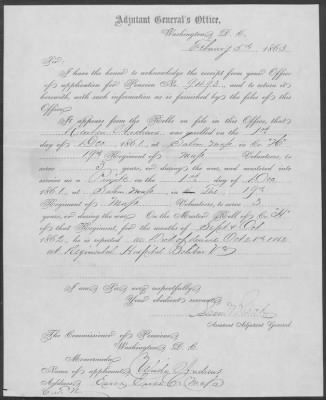 Adjutant General's Office,
Washington, D. C.
February 5th, 1863
Sir:
I have the honor to acknowledge the receipt from your Office
of application for Pension No. 9492, and to return it
herewith, with such information as is furnished by the files of this
Office.
It appears from the Rolls on file in this Office, that
Andrews was enrolled on the 1st
day of Dec, 1861, at Salem Mass in Co. "H"
19th Regiment of Mass Volunteers, to
serve 3 years, or during the war, and mustered into
service as a Private on the 1st day of Dec
1861, at Salem Mass, in the 19th
Regiment of Mass Volunteers, to serve 3
years, or during the war. On the Muster Roll of Co. "H"
of that Regiment, for the months of Sept & Oct
1862, he is reported as Died of Oct 1862
at Regimental Hospital Bolivar Va
I am, Sir, very respectfully,
Your obedient servant,
Assistant Adjutant General.
The Commissioner of Pensions,
Washington, D. C.
Memoranda:
Name of applicant, Andrews
Address, Essex Co Mass